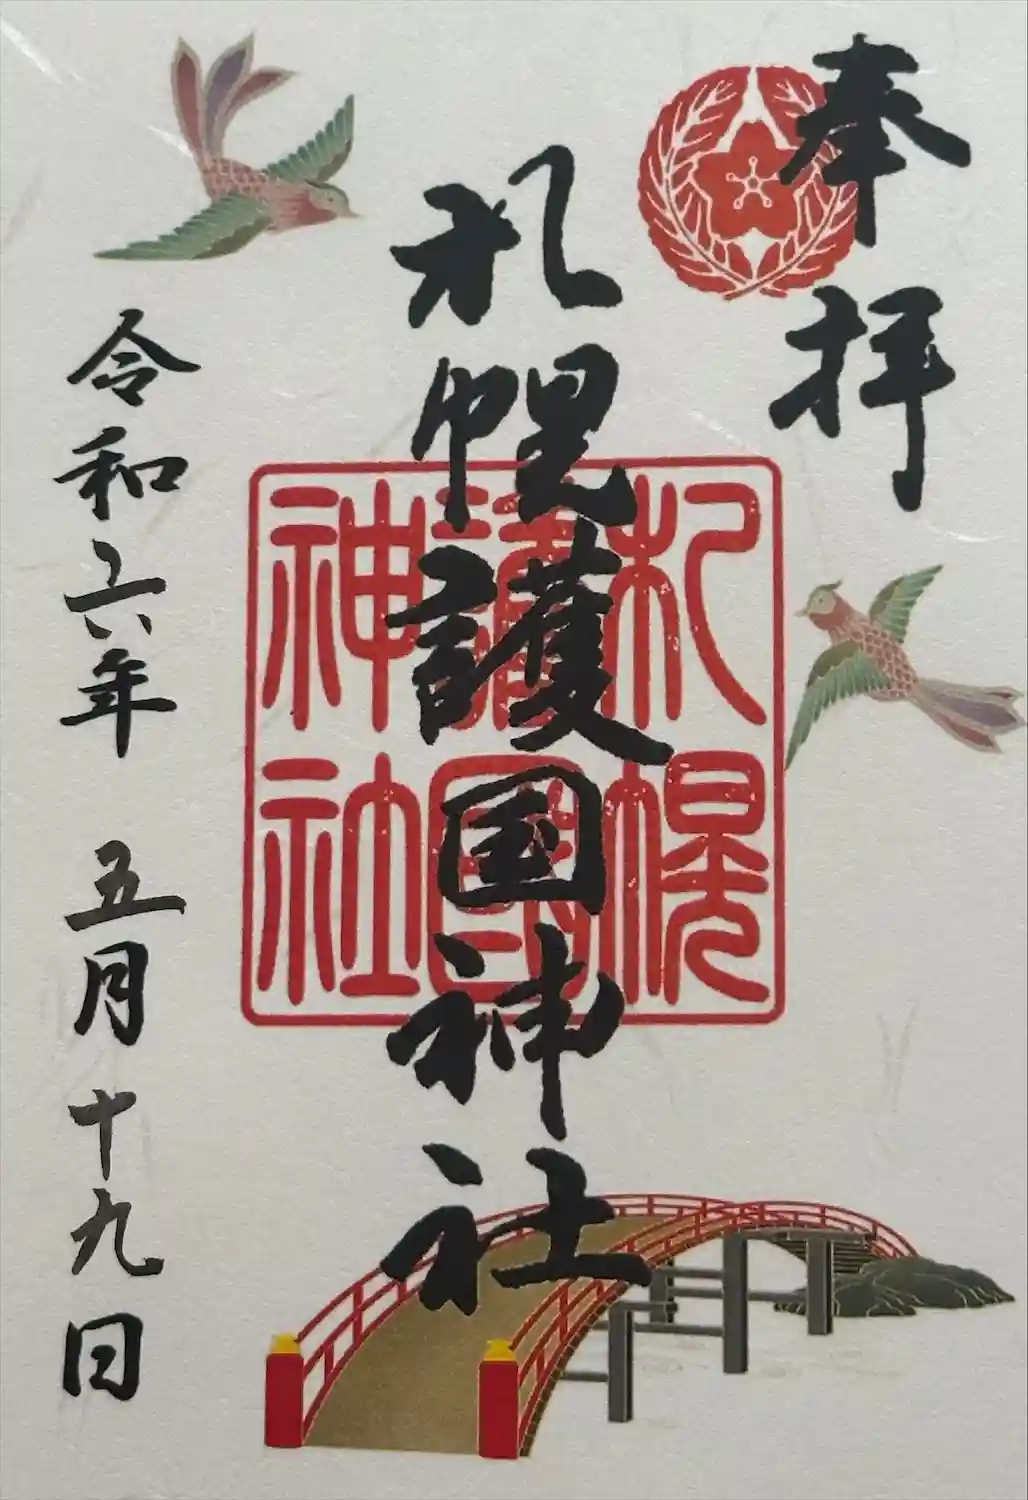 奉拝
札幌護国神社
札幌
護國
神社
令和六年 五月十九日